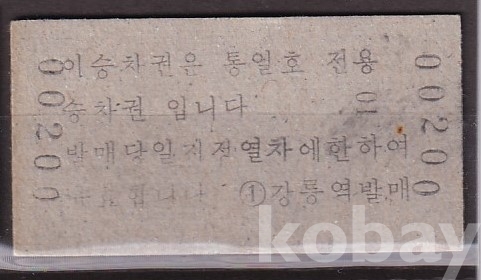 이승차권은 통일호 전용
승차권 입니다
발매당일지정열차에한하여
유효합니다 ①강릉역발매
00200
00200
kobay